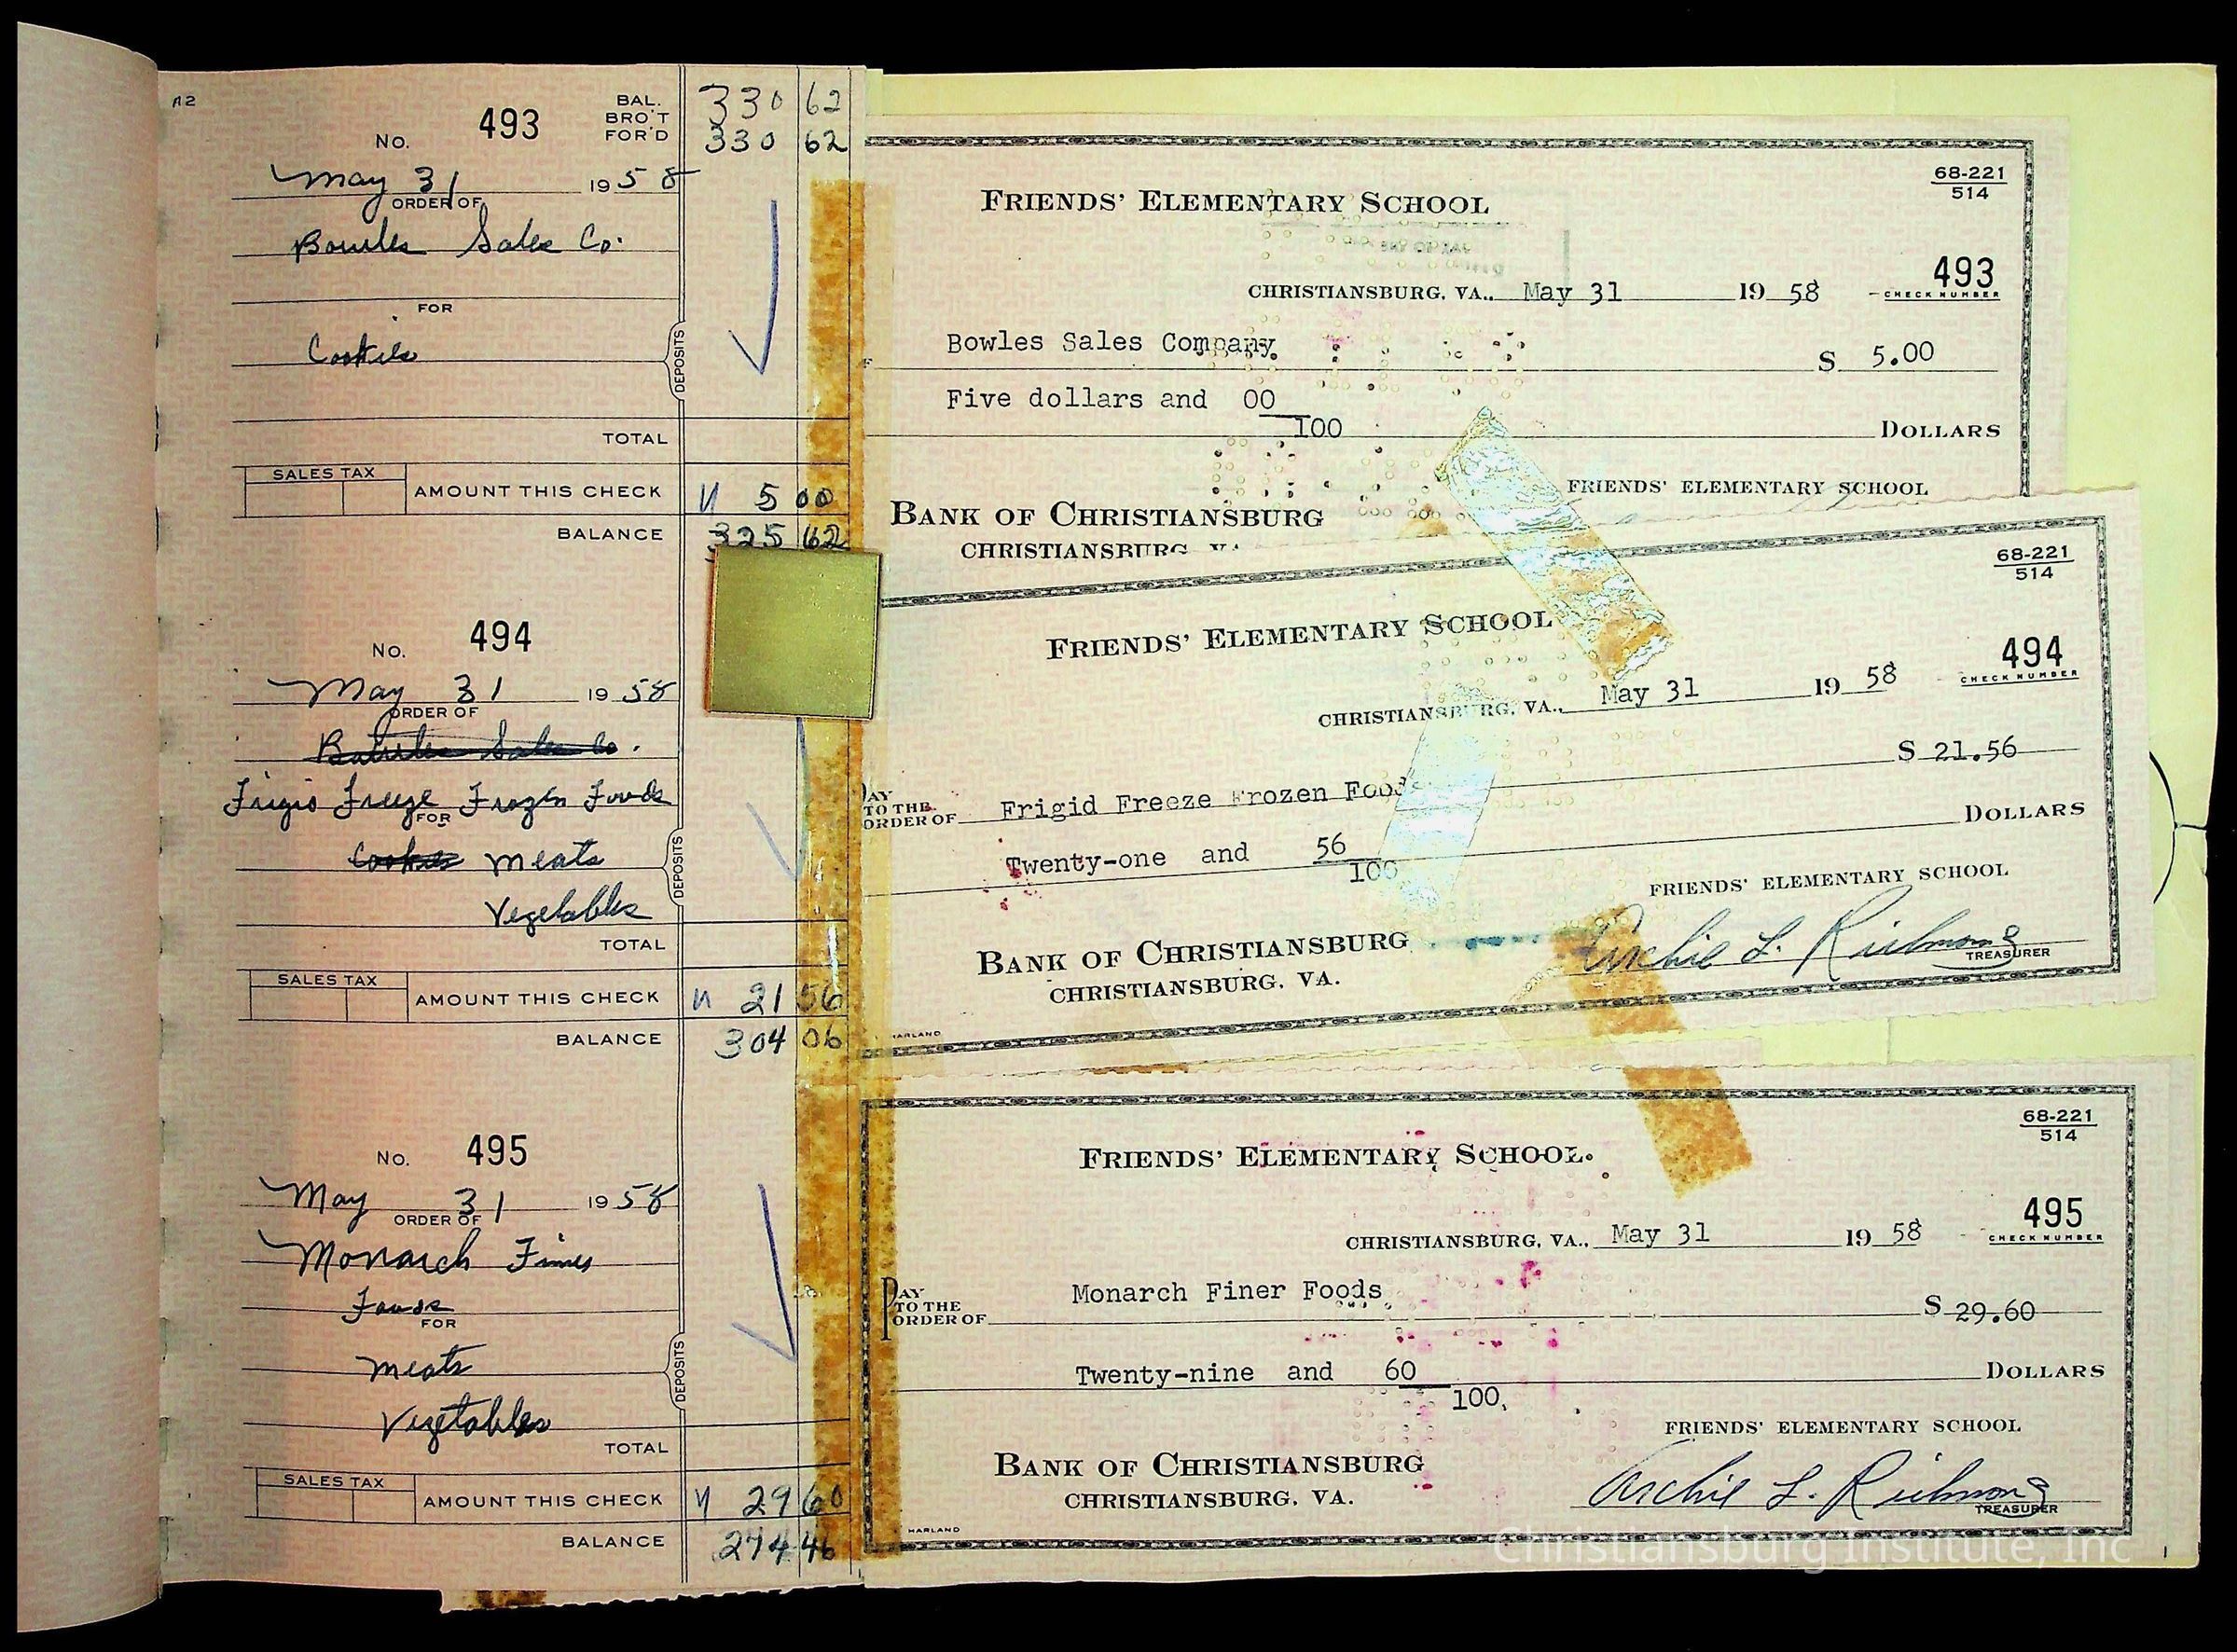 112
No. 493 BAL. BRO'T FOR'D 330 62
330 62
May 31 19 58
ORDER OF
Bowles Sales Co.
FOR
Cookies
DEPOSITS
TOTAL
SALES TAX
AMOUNT THIS CHECK 5 00
BALANCE 325 62
No. 494
May 31 19 58
ORDER OF
Bowles Sales Co.
Frigid Freeze Frozen Foods
FOR
Cookies meats
Vegetables
DEPOSITS
TOTAL
SALES TAX
AMOUNT THIS CHECK 21 56
BALANCE 304 06
No. 495
May 31 19 58
ORDER OF
Monarch Fines
Foods
FOR
meats
Vegetables
DEPOSITS
TOTAL
SALES TAX
AMOUNT THIS CHECK 29 60
BALANCE 274 46
68-221
514
FRIENDS' ELEMENTARY SCHOOL
493
CHECK NUMBER
CHRISTIANSBURG, VA., May 31 19 58
Bowles Sales Company $ 5.00
Five dollars and 00
100 DOLLARS
FRIENDS' ELEMENTARY SCHOOL
BANK OF CHRISTIANSBURG
CHRISTIANSBURG
68-221
514
FRIENDS' ELEMENTARY SCHOOL
494
CHECK NUMBER
CHRISTIANSBURG, VA., May 31 19 58
PAY TO THE ORDER OF Frigid Freeze Frozen Foods $ 21.56
Twenty-one and 56
100 DOLLARS
FRIENDS' ELEMENTARY SCHOOL
BANK OF CHRISTIANSBURG
CHRISTIANSBURG, VA.
Archie L. Richmond
TREASURER
HARLAND
68-221
514
FRIENDS' ELEMENTARY SCHOOL
495
CHECK NUMBER
CHRISTIANSBURG, VA., May 31 19 58
PAY TO THE ORDER OF Monarch Finer Foods $ 29.60
Twenty-nine and 60
100 DOLLARS
FRIENDS' ELEMENTARY SCHOOL
BANK OF CHRISTIANSBURG
CHRISTIANSBURG, VA.
Archie L. Richmond
TREASURER
HARLAND
Christiansburg Institute, Inc